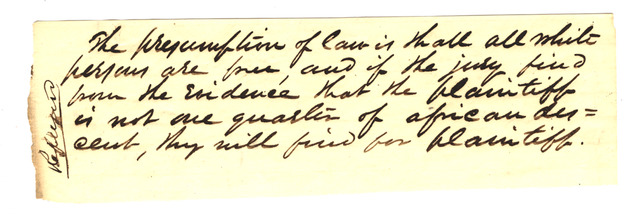 The presumption of law is thatt all white
persons are free, and if the jury find
from the evidence that the plaintiff
is not one quarter of african des=
cent, they will find for plaintiff.
Refused